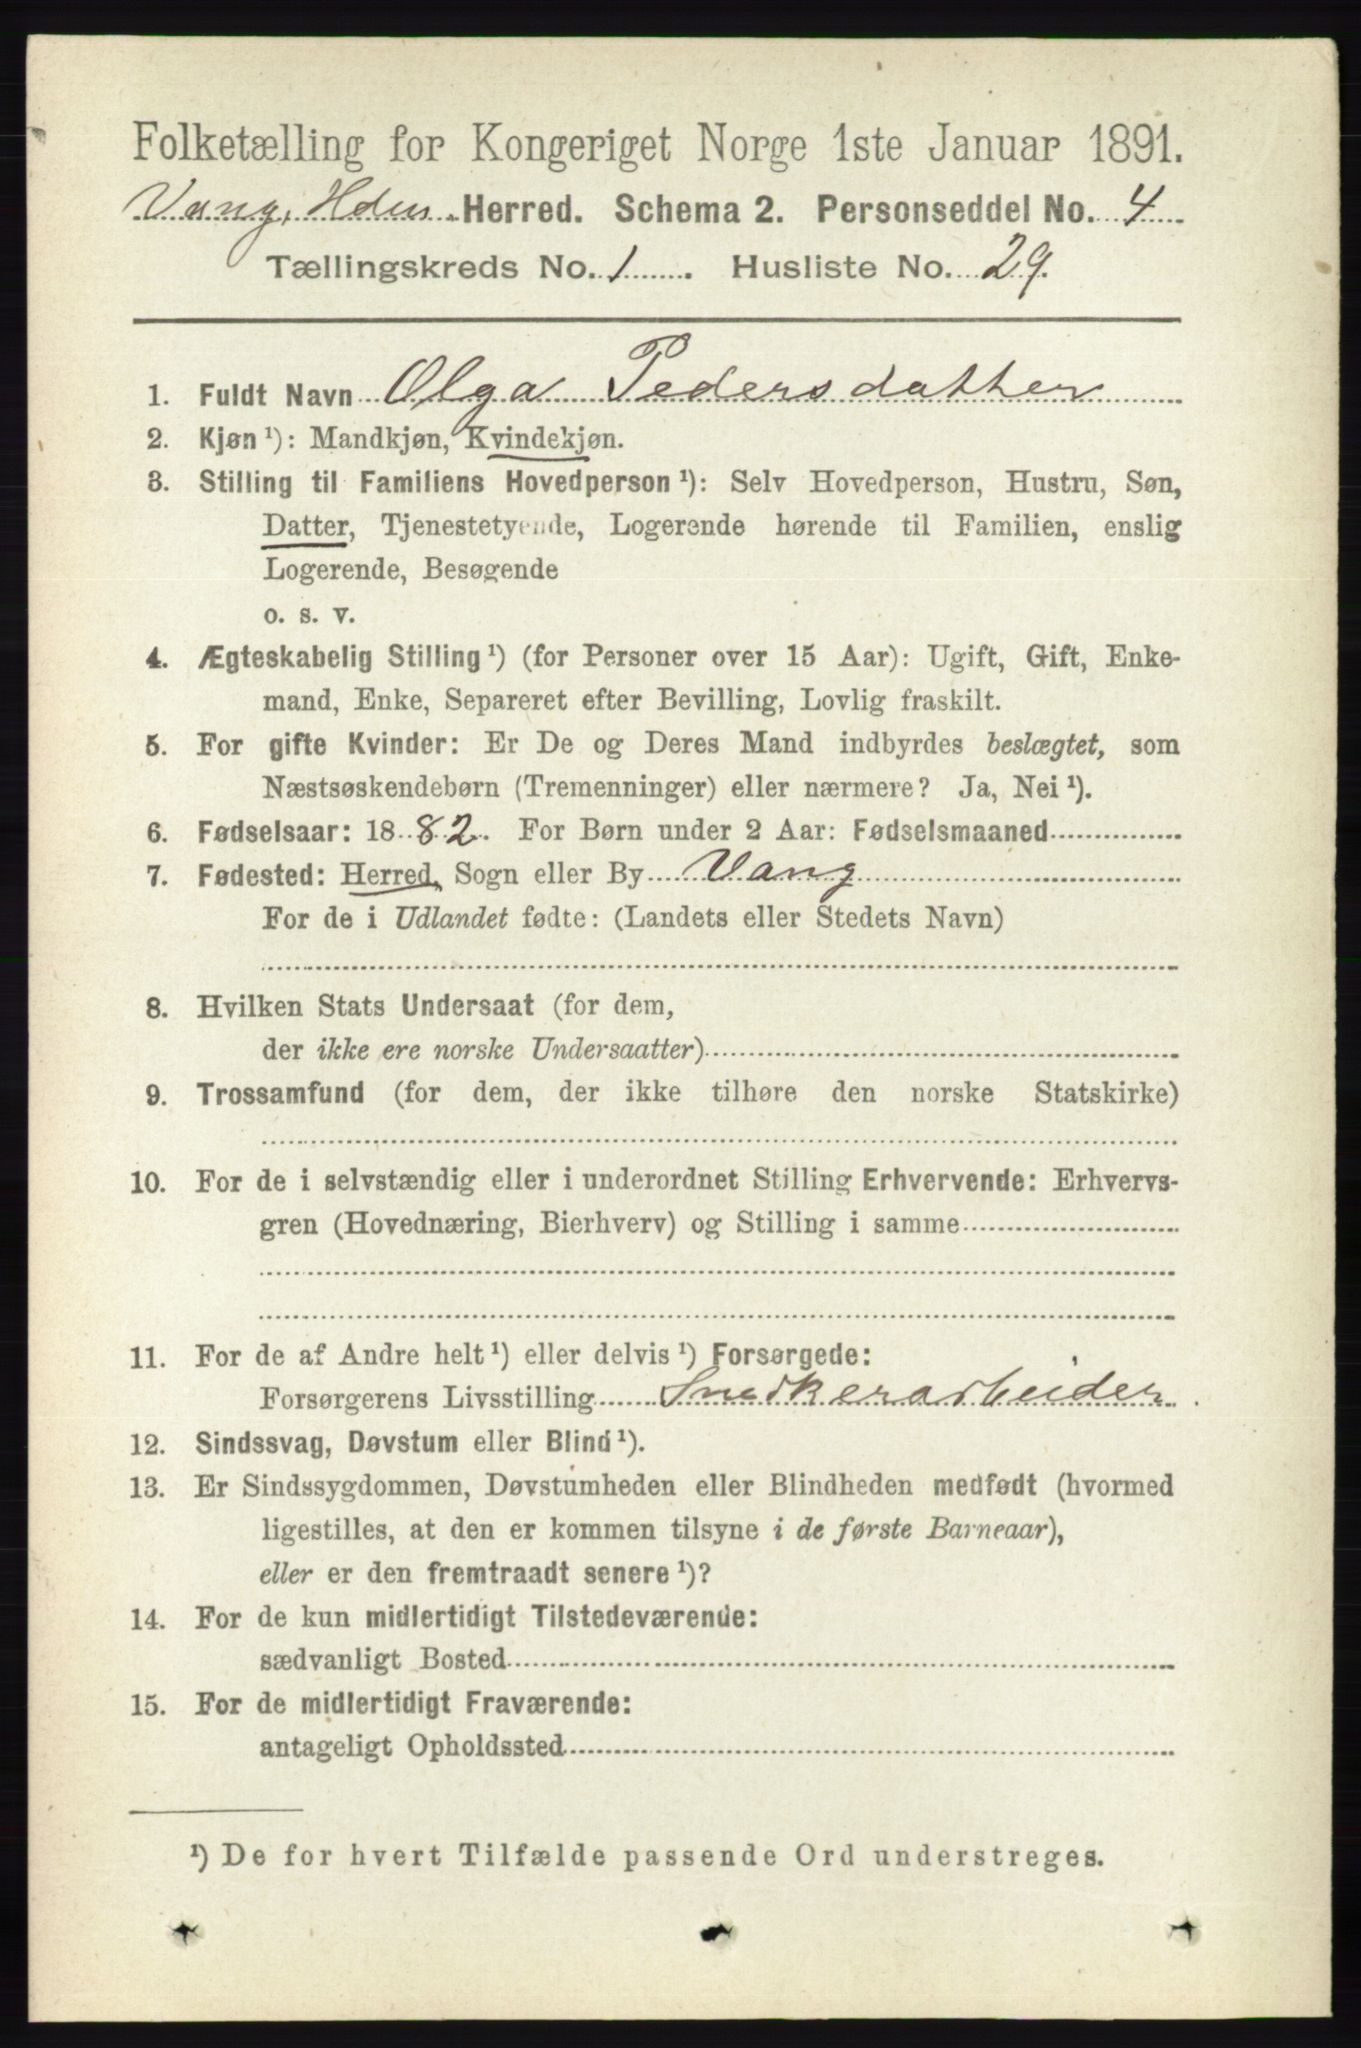 Folketælling for Kongeriget Norge 1ste Januar 1891.
Vang, Hdm Herred. Schema 2. Personseddel No. 4
Tællingskreds No. 1. Husliste No. 29.
1. Fuldt Navn Olga Pedersdatter
2. Kjøn ¹): Mandkjøn, Kvindekjøn.
3. Stilling til Familiens Hovedperson ¹): Selv Hovedperson, Hustru, Søn,
Datter, Tjenestetyende, Logerende hørende til Familien, enslig
Logerende, Besøgende
o. s. v.
4. Ægteskabelig Stilling ¹) (for Personer over 15 Aar): Ugift, Gift, Enke-
mand, Enke, Separeret efter Bevilling, Lovlig fraskilt.
5. For gifte Kvinder: Er De og Deres Mand indbyrdes beslægtet, som
Næstsøskendebørn (Tremenninger) eller nærmere? Ja, Nei ¹).
6. Fødselsaar: 1882. For Børn under 2 Aar: Fødselsmaaned
7. Fødested: Herred, Sogn eller By Vang
For de i Udlandet fødte: (Landets eller Stedets Navn)
8. Hvilken Stats Undersaat (for dem,
der ikke ere norske Undersaatter)
9. Trossamfund (for dem, der ikke tilhøre den norske Statskirke)
10. For de i selvstændig eller i underordnet Stilling Erhvervende: Erhvervs-
gren (Hovednæring, Bierhverv) og Stilling i samme
11. For de af Andre helt ¹) eller delvis ¹) Forsørgede:
Forsørgerens Livsstilling Snedkerarbeider.
12. Sindssvag, Døvstum eller Blind ¹).
13. Er Sindssygdommen, Døvstumheden eller Blindheden medfødt (hvormed
ligestilles, at den er kommen tilsyne i de første Barneaar),
eller er den fremtraadt senere ¹)?
14. For de kun midlertidigt Tilstedeværende:
sædvanligt Bosted
15. For de midlertidigt Fraværende:
antageligt Opholdssted
¹) De for hvert Tilfælde passende Ord understreges.